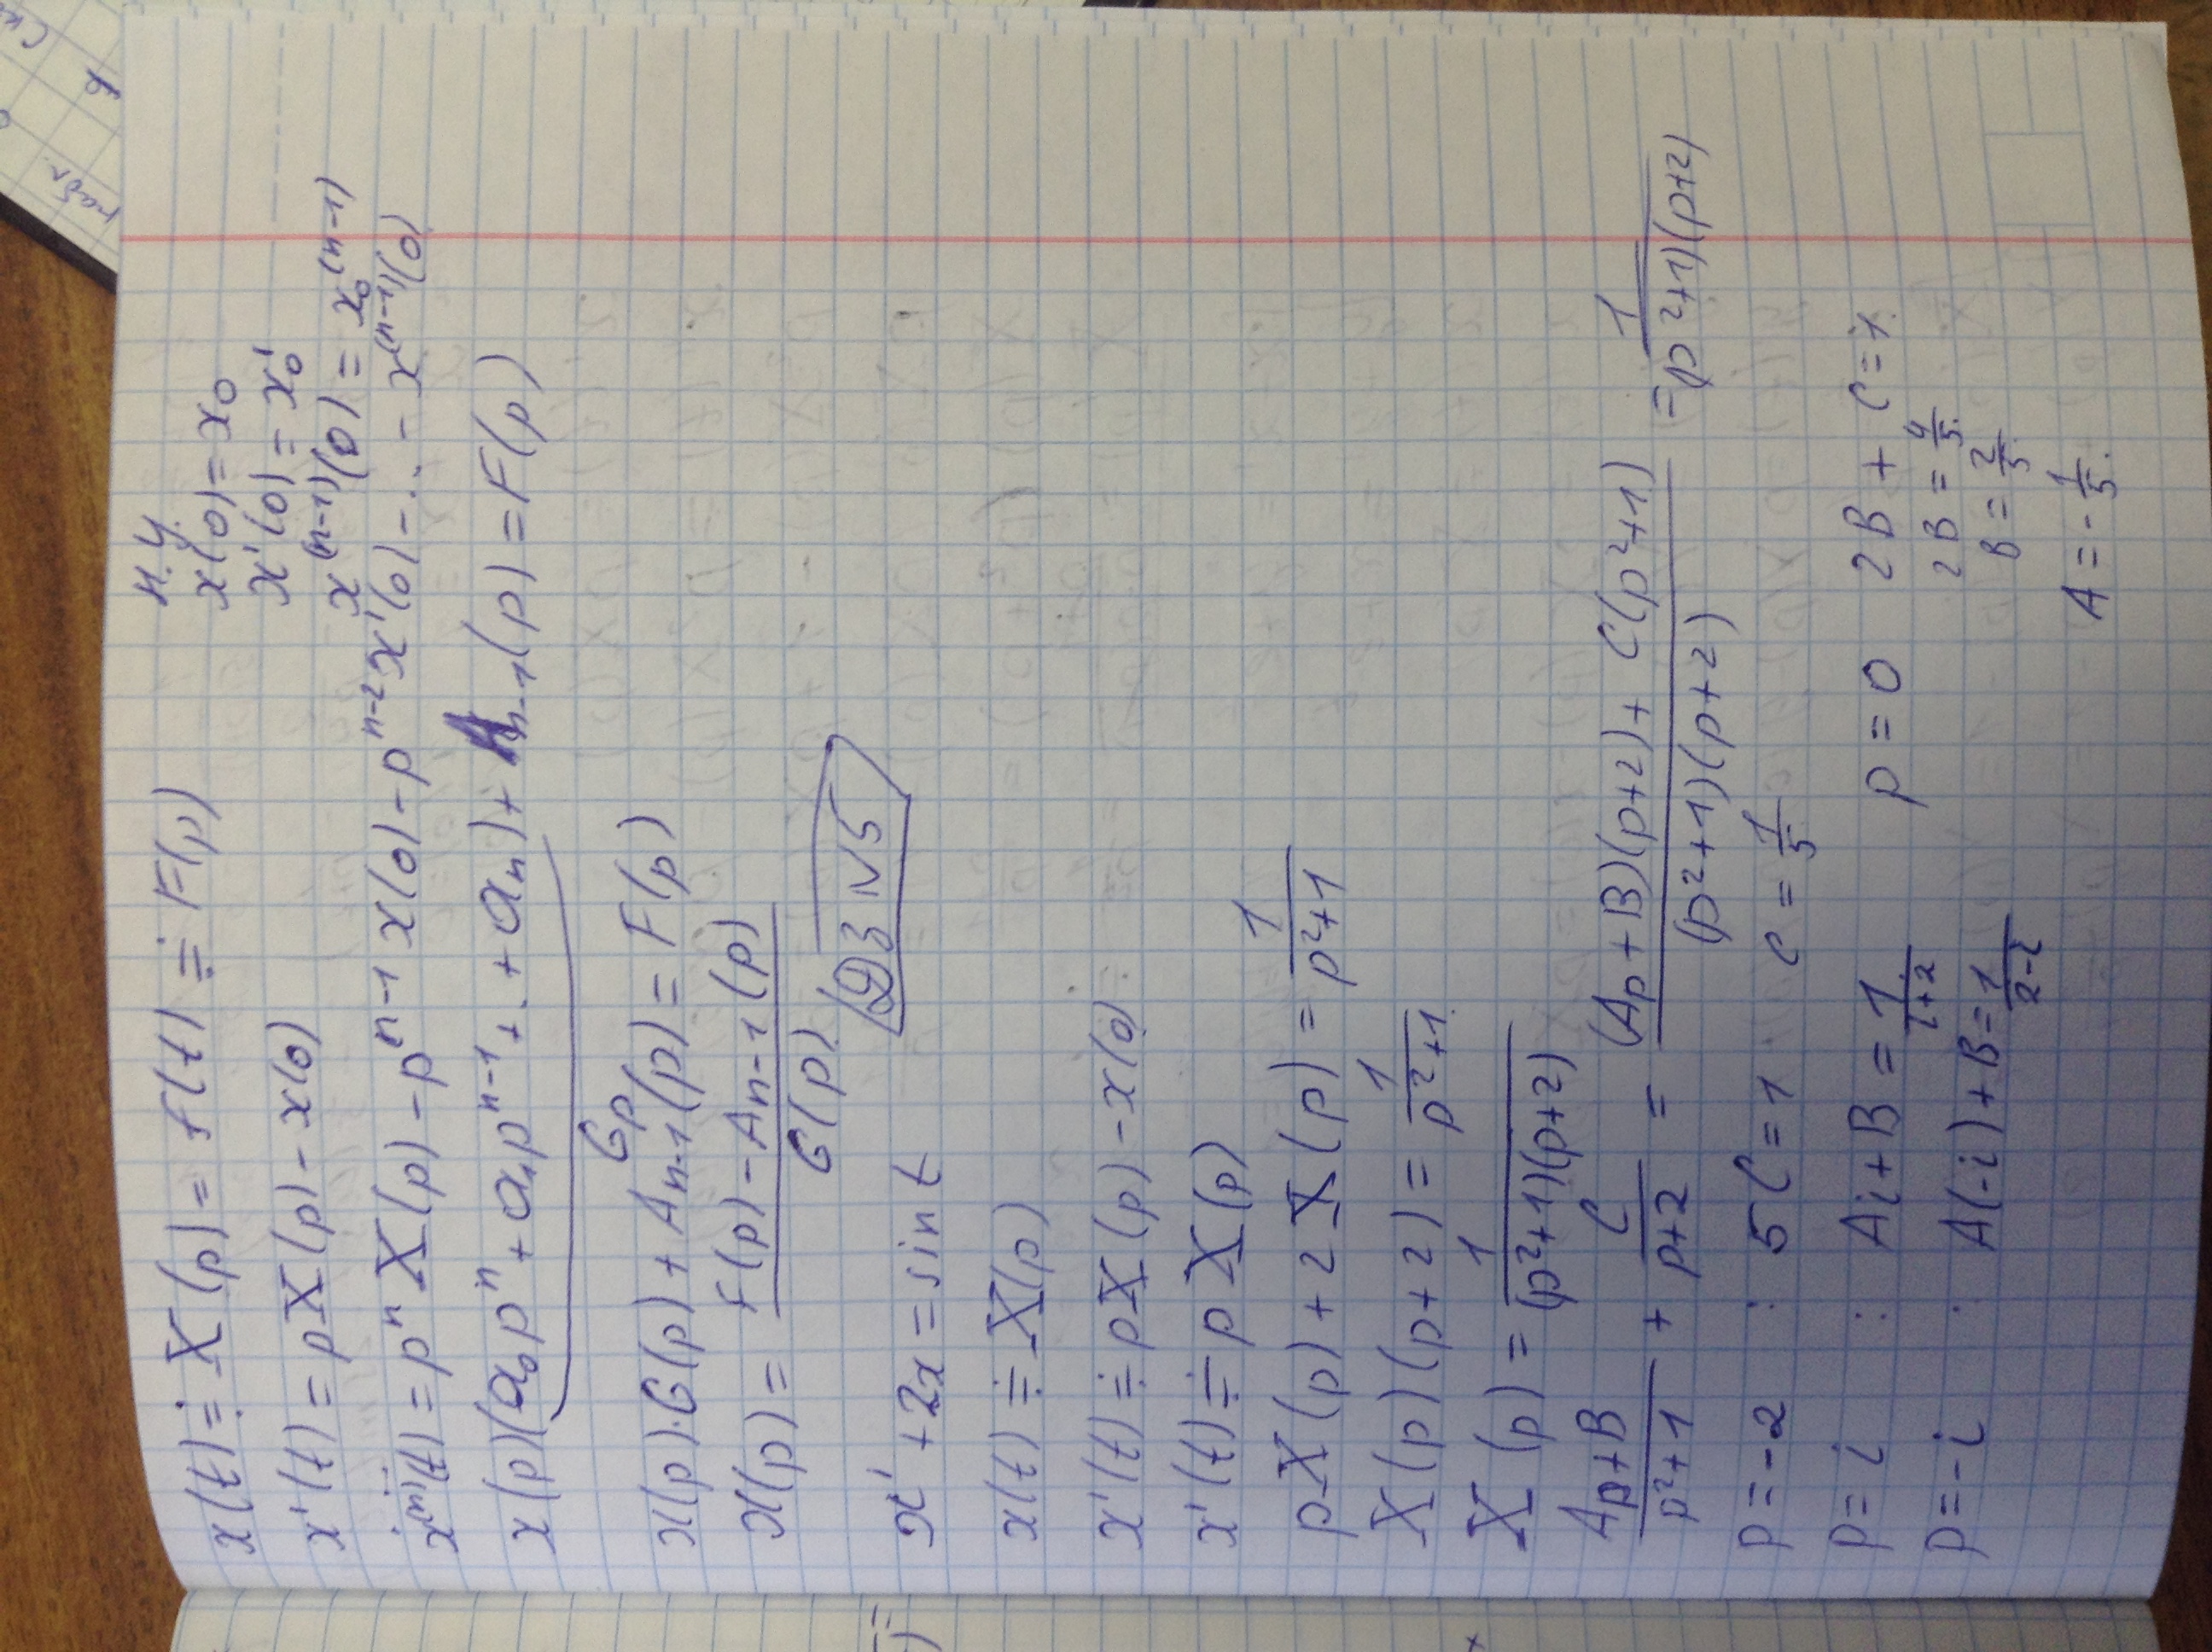 x(t) ≓ X(p) = f(t) ≓ F(p)
н.у.
x(0) = x₀
x'(t) = pX(p) - x(0)
x'(0) = x₀'
x⁽ⁿ⁻¹⁾(0) = x₀⁽ⁿ⁻¹⁾
x⁽ⁿ⁾(t) = pⁿX(p) - pⁿ⁻¹x(0) - pⁿ⁻²x'(0) - ... - x⁽ⁿ⁻¹⁾(0)
x(p)(a₀pⁿ + a₁pⁿ⁻¹ + ... + aₙ) + Aₙ₋₁(p) = F(p)
Gp
x(p)·G(p) + Aₙ₋₁(p) = F(p)
x(p) = (F(p) - Aₙ₋₁(p)) / G(p)
ДЗ №5
x' + 2x = sin t
x(t) ≓ X(p)
x'(t) ≓ pX(p) - x(0)
x'(t) ≓ pX(p)
pX(p) + 2X(p) = 1/(p²+1)
X(p)(p+2) = 1/(p²+1)
X(p) = 1/((p²+1)(p+2))
(Ap+B)/(p²+1) + C/(p+2) = ((Ap+B)(p+2) + C(p²+1))/((p²+1)(p+2)) = 1/((p²+1)(p+2))
p = -2 : 5C = 1 c = 1/5
p = i : Ai + B = 1/(i+2) p = 0 2B + C = 1
2B = 4/5
p = -i : A(-i) + B = 1/(2-i) B = 2/5
A = -1/5